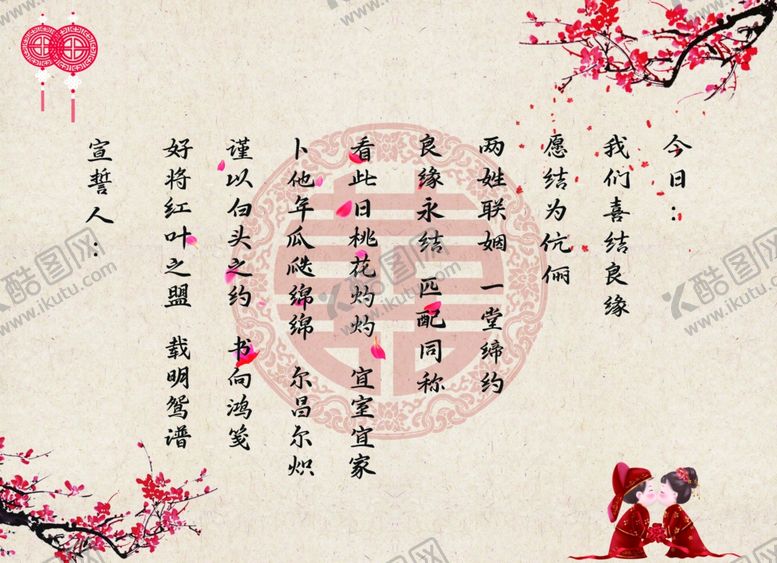 今日：
我们喜结良缘
愿结为伉俪
两姓联姻 一堂缔约
良缘永结 匹配同称
看此日桃花灼灼 宜室宜家
卜他年瓜瓞绵绵 尔昌尔炽
谨以白头之约 书向鸿笺
好将红叶之盟 载明鸳谱
宣誓人：
酷图网
www.ikutu.com
酷图网
www.ikutu.com
酷图网
www.ikutu.com